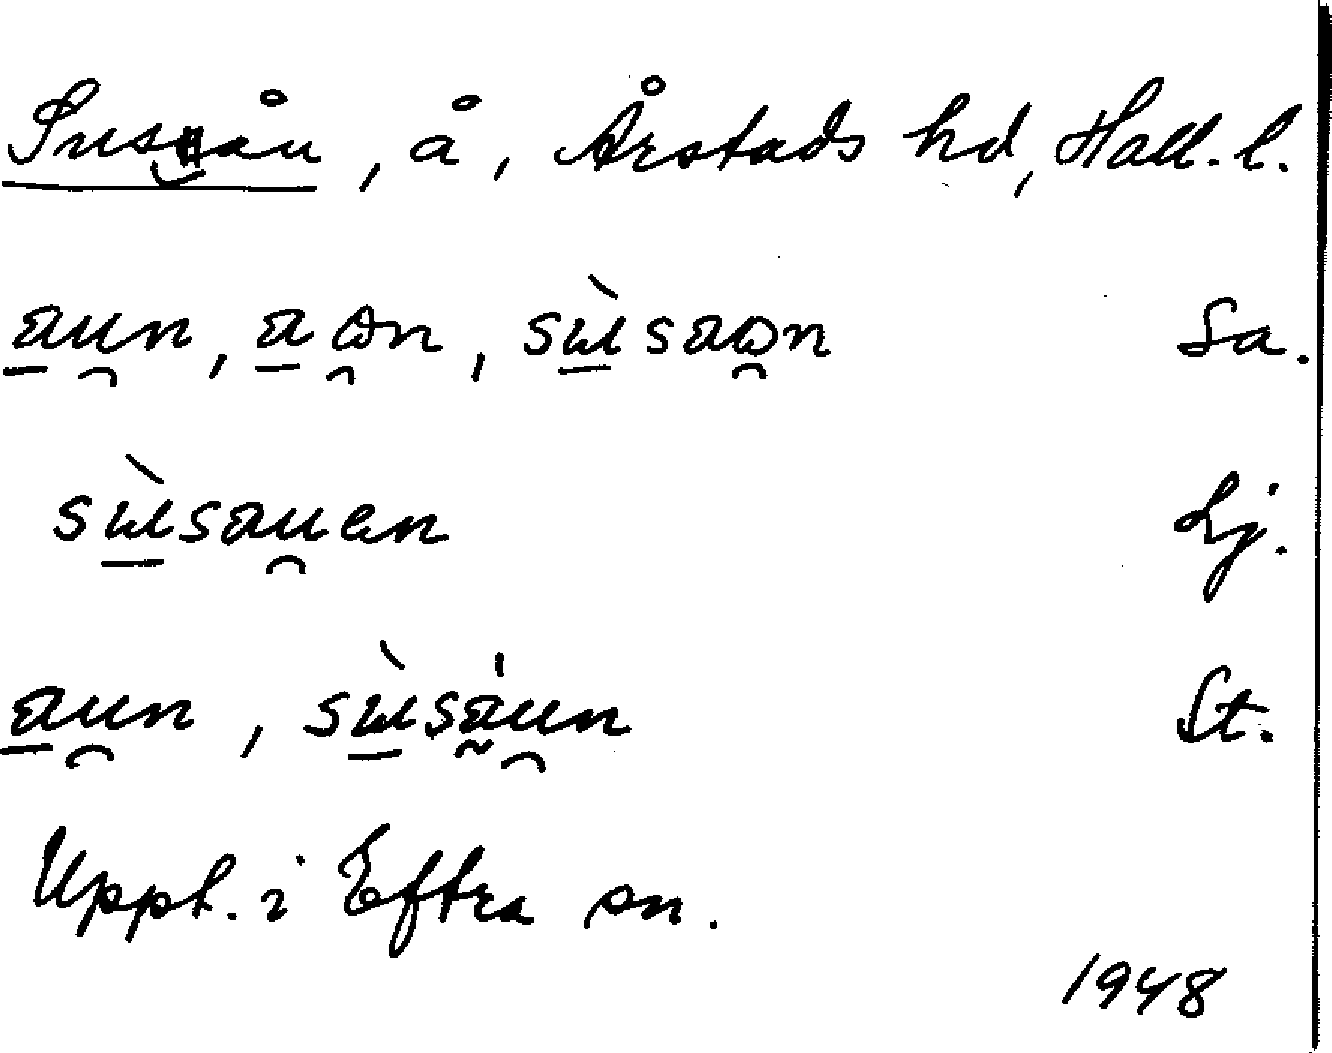 Susuån, å, Årstads hd, Hall. l.
aun, aɷn, sɯ̀saɷn Sa.
sɯ̀sauen Lj.
aun, sɯ̀sa̍un St.
Uppt. i Eftra sn.
1948